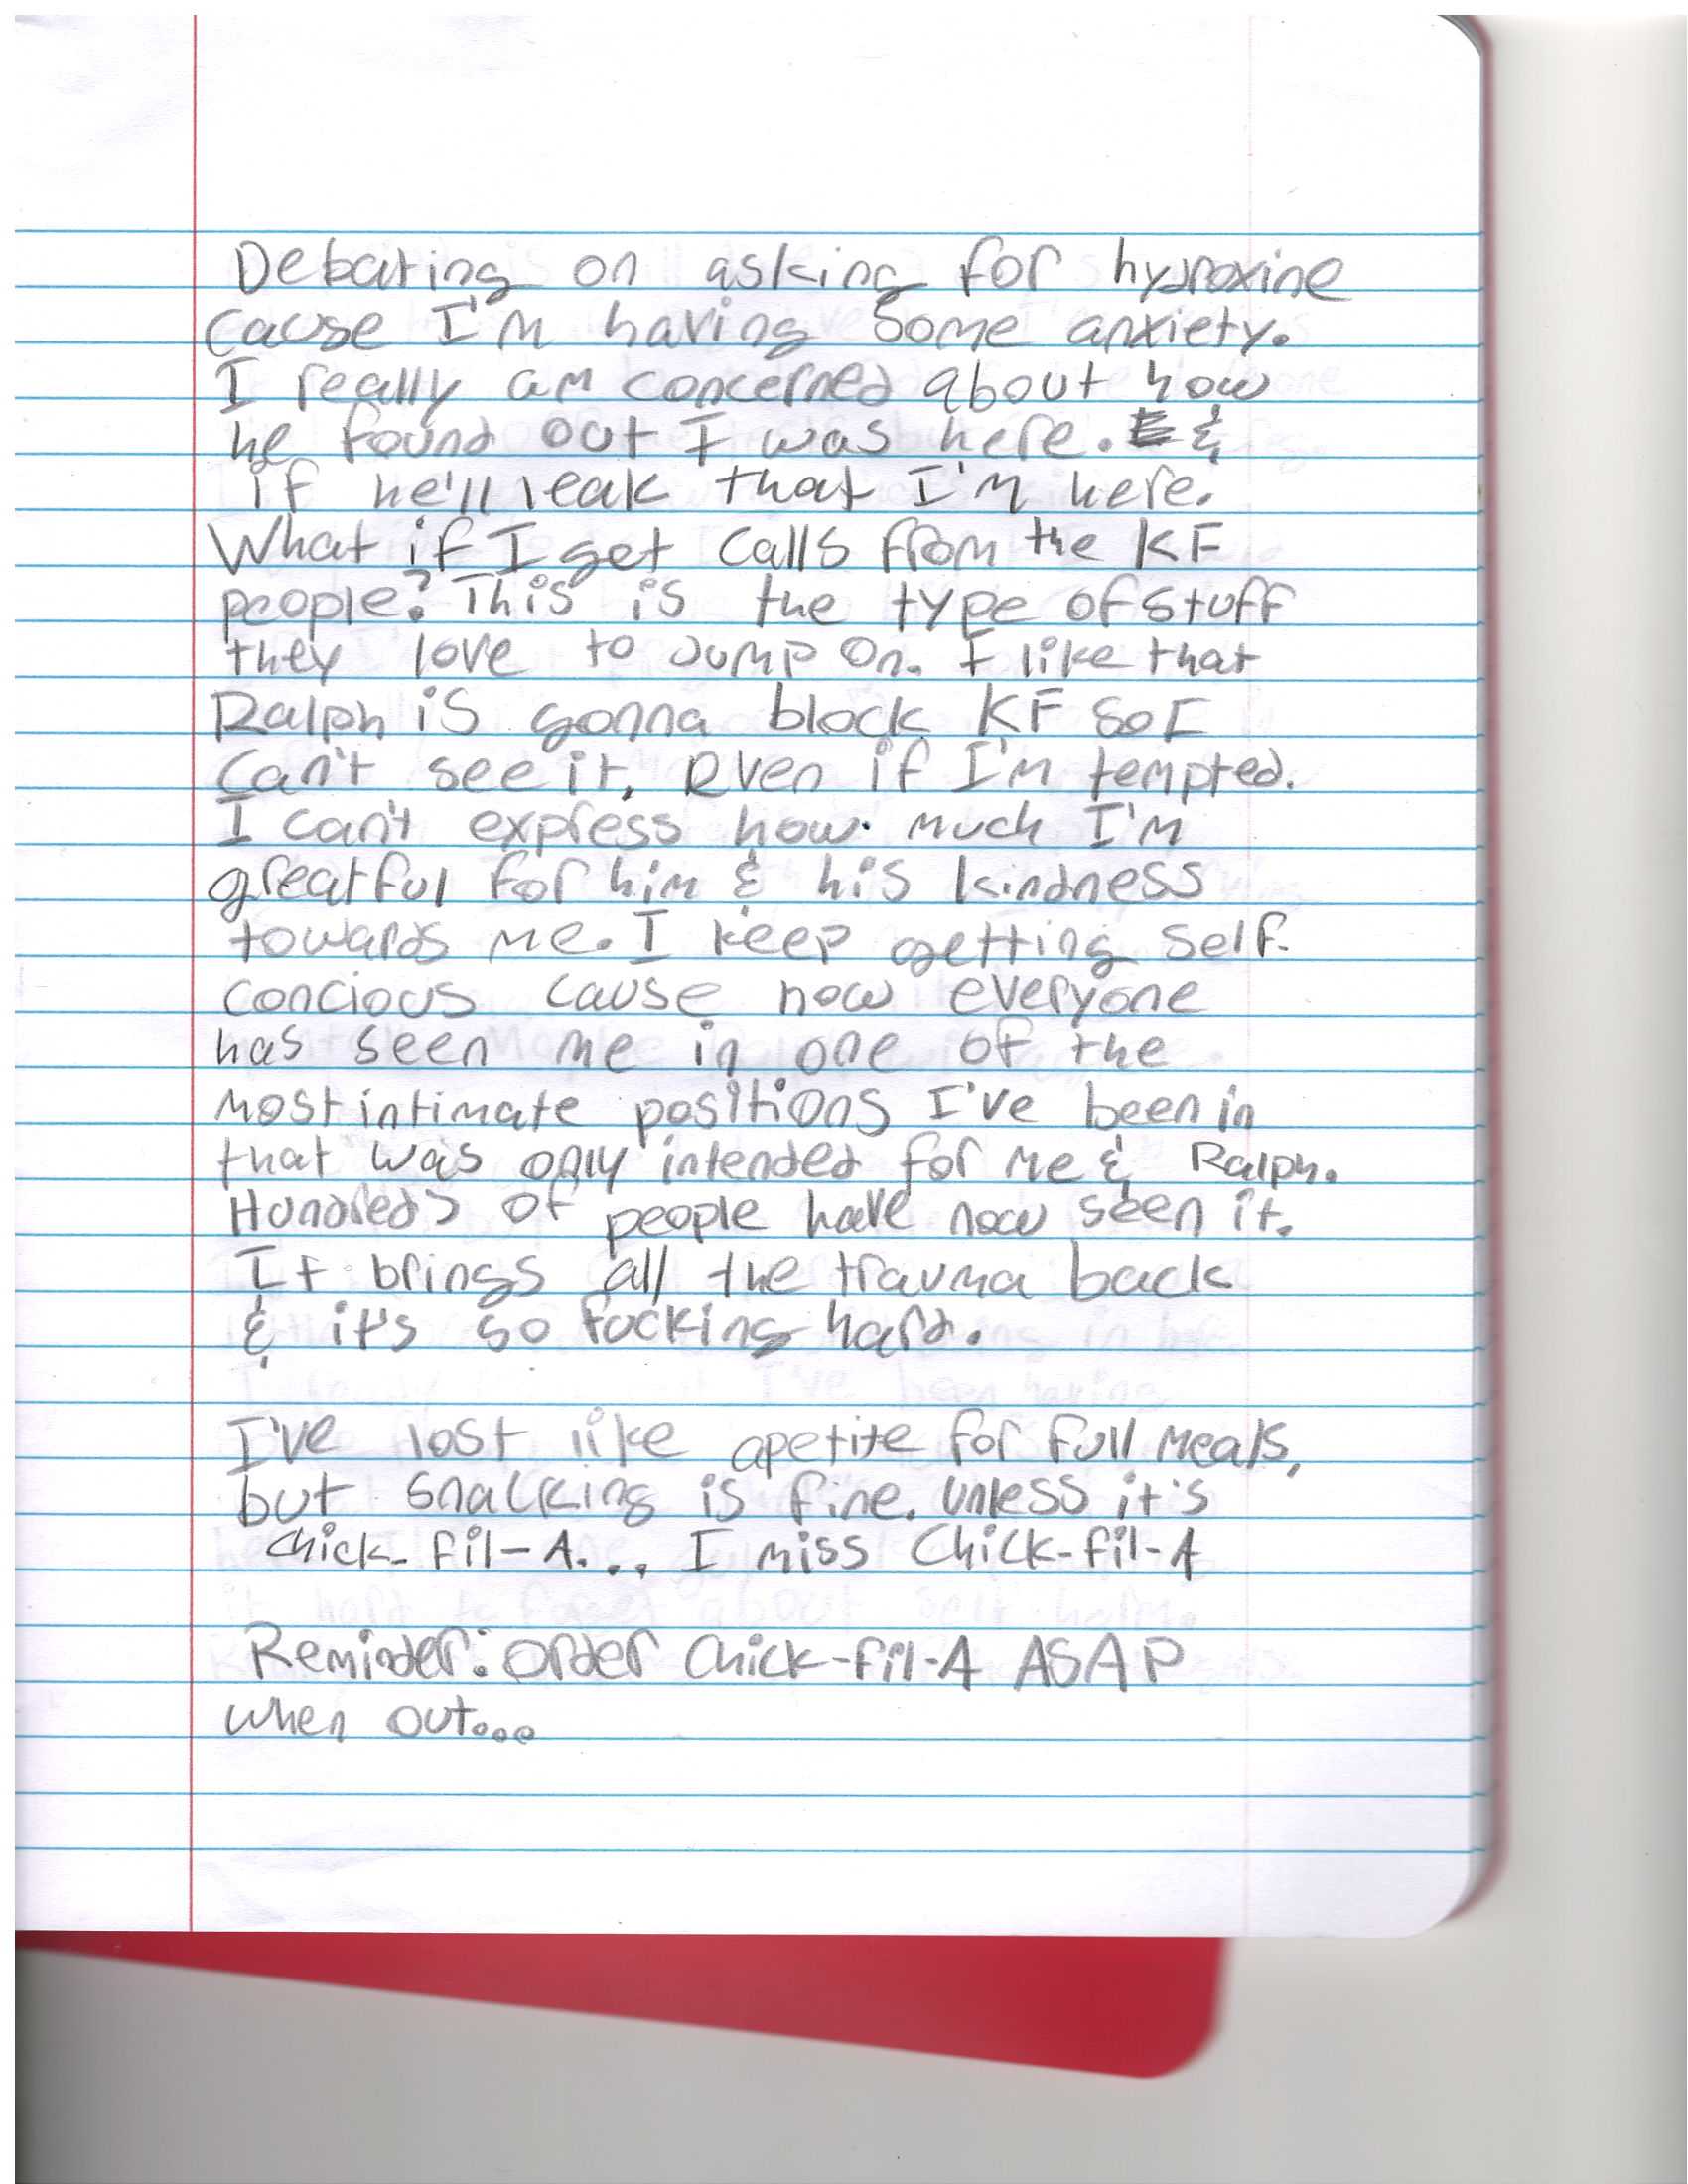 Debating on asking for hydroxine
cause I'm having some anxiety.
I really am concerned about how
he found out I was here. &
if he'll leak that I'm here.
What if I get calls from the KF
people? This is the type of stuff
they love to jump on. I like that
Ralph is gonna block KF so I
can't see it, even if I'm tempted.
I can't express how much I'm
greatful for him & his kindness
towards me. I keep getting self-
concious cause now everyone
has seen me in one of the
most intimate positions I've been in
that was only intended for me & Ralph.
Hundreds of people have now seen it.
It brings all the trauma back
& it's so fucking hard.
I've lost like apetite for full meals,
but snacking is fine. Unless it's
Chick-fil-A... I miss Chick-fil-A
Reminder: Order Chick-fil-A ASAP
when out...